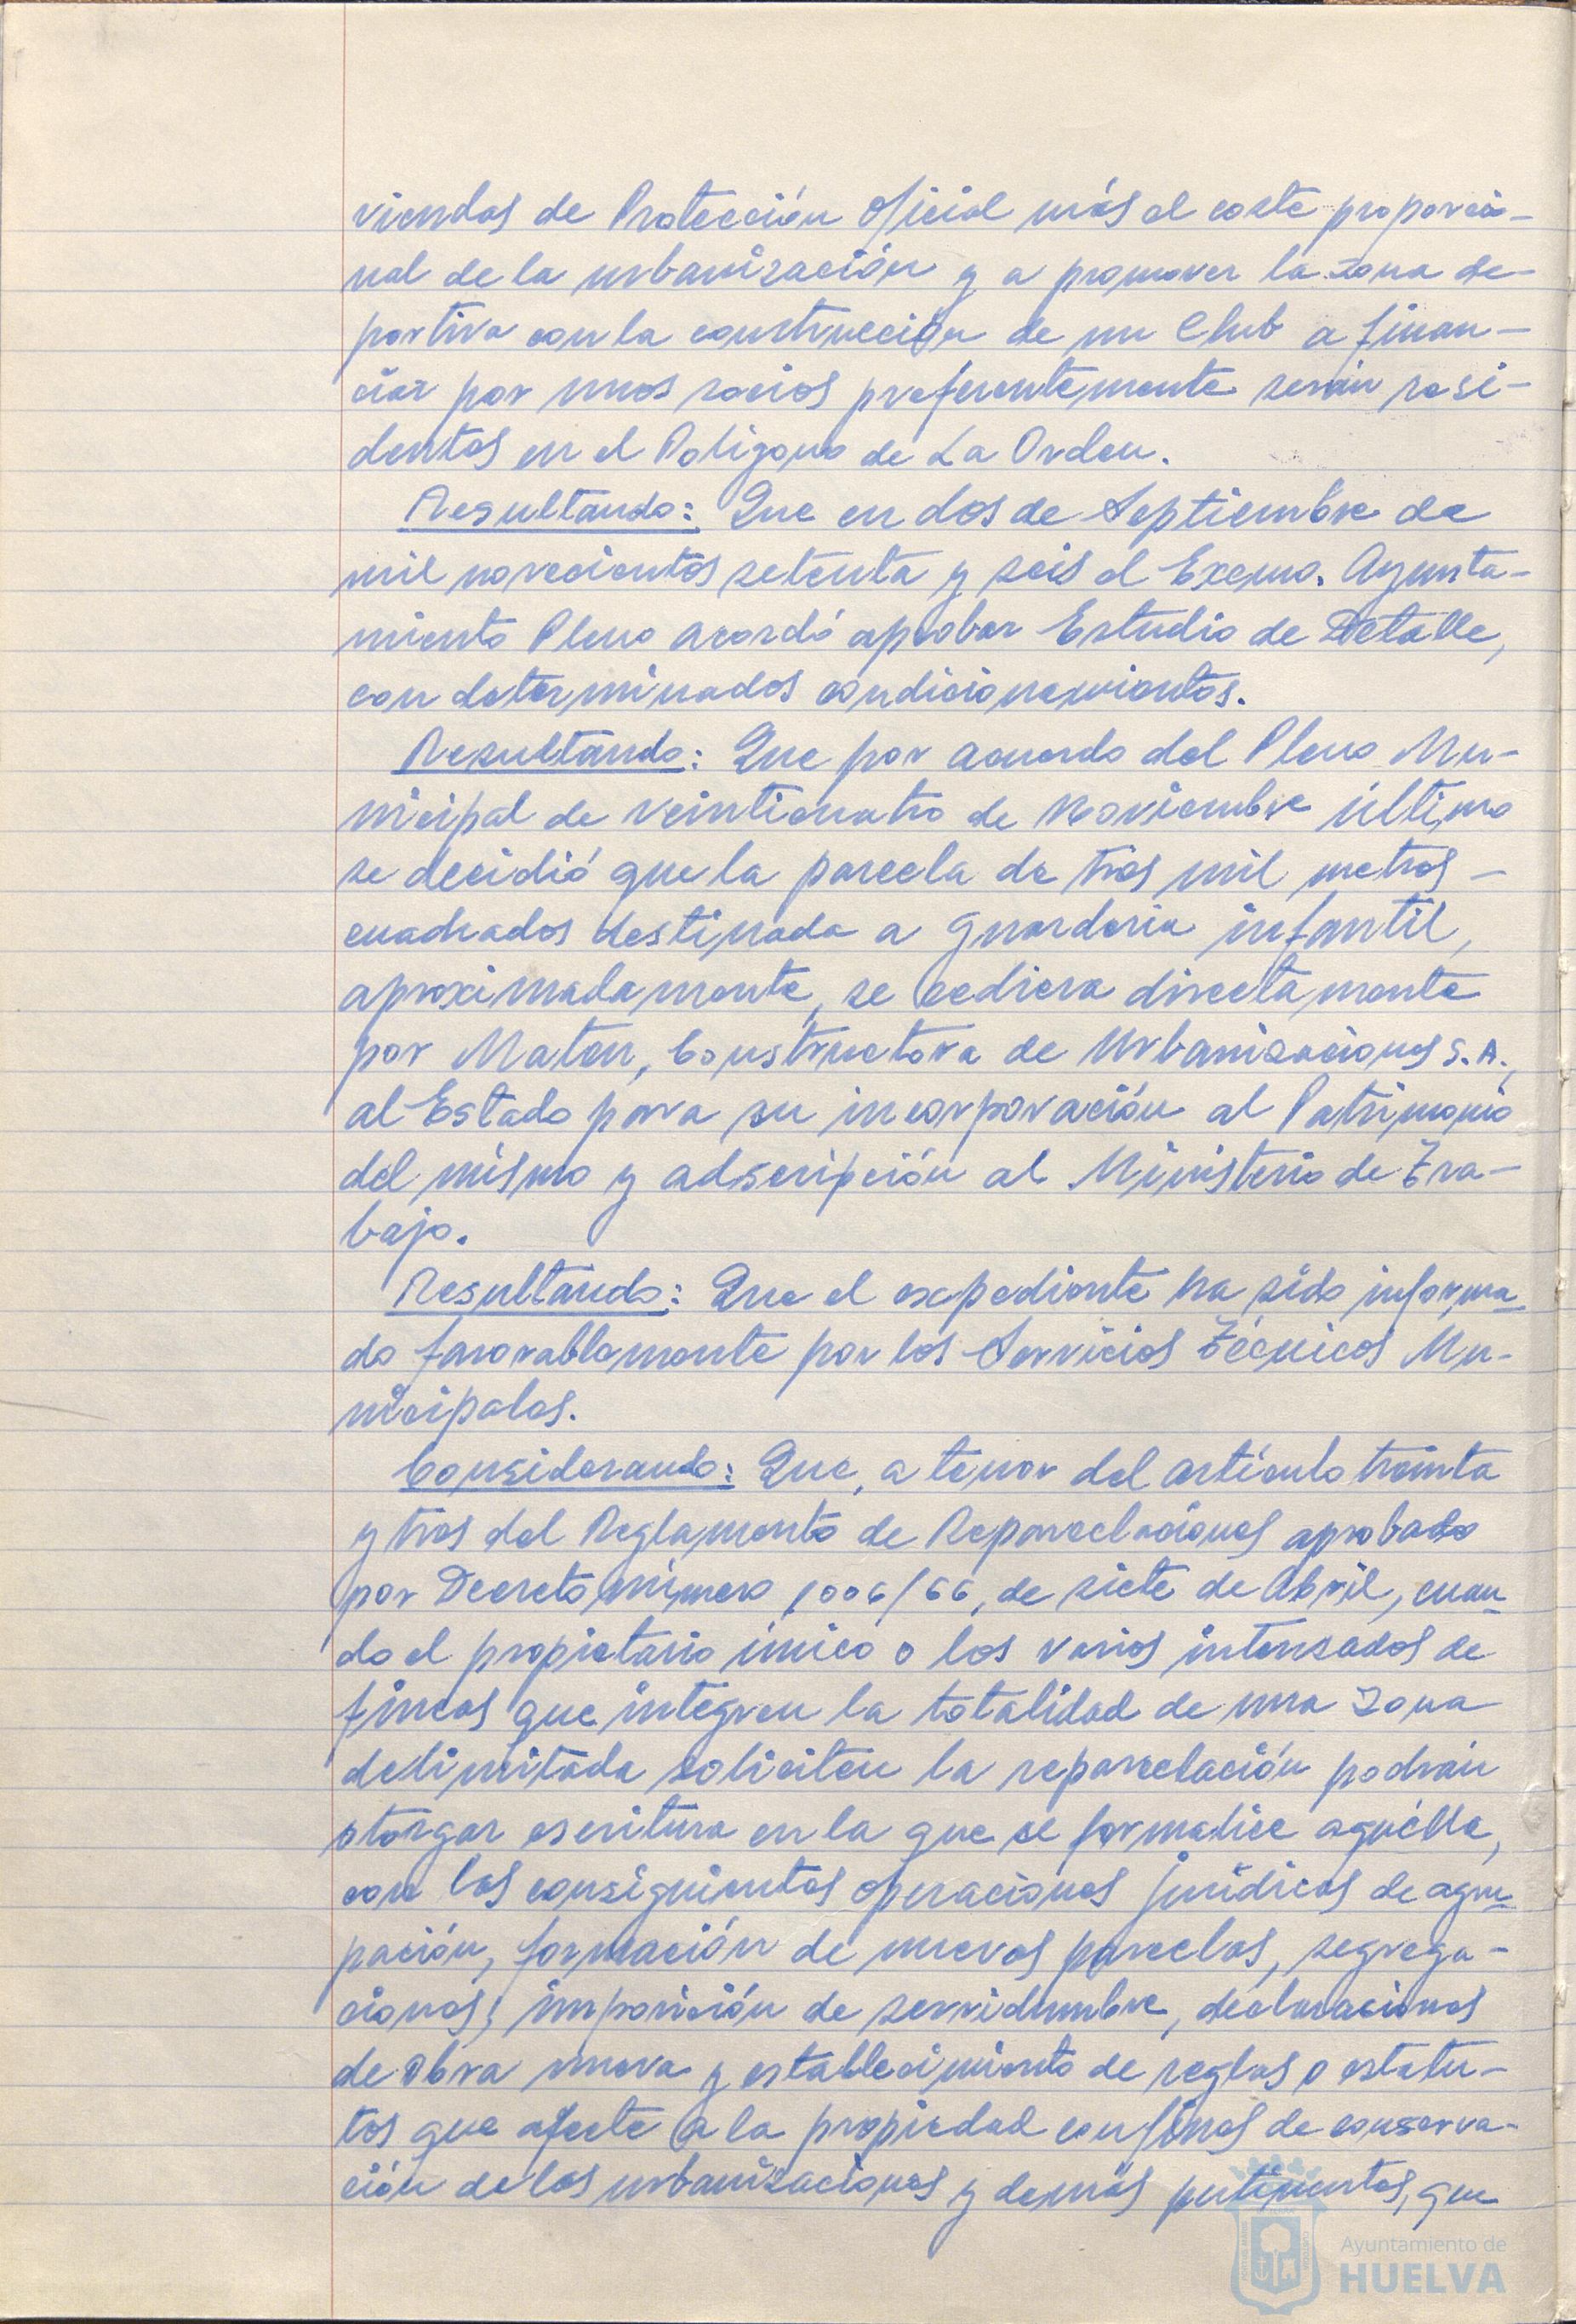 viendas de Protección Oficial más el coste proporcio-
nal de la urbanización y a promover la zona de-
portiva con la construcción de un Club a finan-
ciar por unos socios preferentemente serán resi-
dentes en el Polígono de La Orden.
Resultando: Que en dos de Septiembre de
mil novecientos setenta y seis el Excmo. Ayunta-
miento Pleno acordó aprobar Estudio de Detalle,
con determinados condicionamientos.
Resultando: Que por acuerdo del Pleno Mu-
nicipal de veinticuatro de Noviembre último
se decidió que la parcela de tres mil metros -
cuadrados destinada a guardería infantil,
aproximadamente, se cediera directamente
por Maten, Constructora de Urbanizaciones S.A.,
al Estado para su incorporación al Patrimonio
del mismo y adscripción al Ministerio de Tra-
bajo.
Resultando: Que el expediente ha sido informa-
do favorablemente por los Servicios Técnicos Mu-
nicipales.
Considerando: Que, a tenor del artículo treinta
y tres del Reglamento de Reparcelaciones aprobado
por Decreto número 1006/66, de siete de Abril, cuan-
do el propietario único o los varios interesados de
fincas que integren la totalidad de una zona
delimitada soliciten la reparcelación podrán
otorgar escritura en la que se formalice aquélla,
con las consiguientes operaciones jurídicas de agru-
pación, formación de nuevas parcelas, segrega-
ciones, imposición de servidumbre, declaraciones
de obra nueva y establecimiento de reglas o estatu-
tos que afecte a la propiedad con fines de conserva-
ción de las urbanizaciones y demás pertinentes, que
Ayuntamiento de
HUELVA